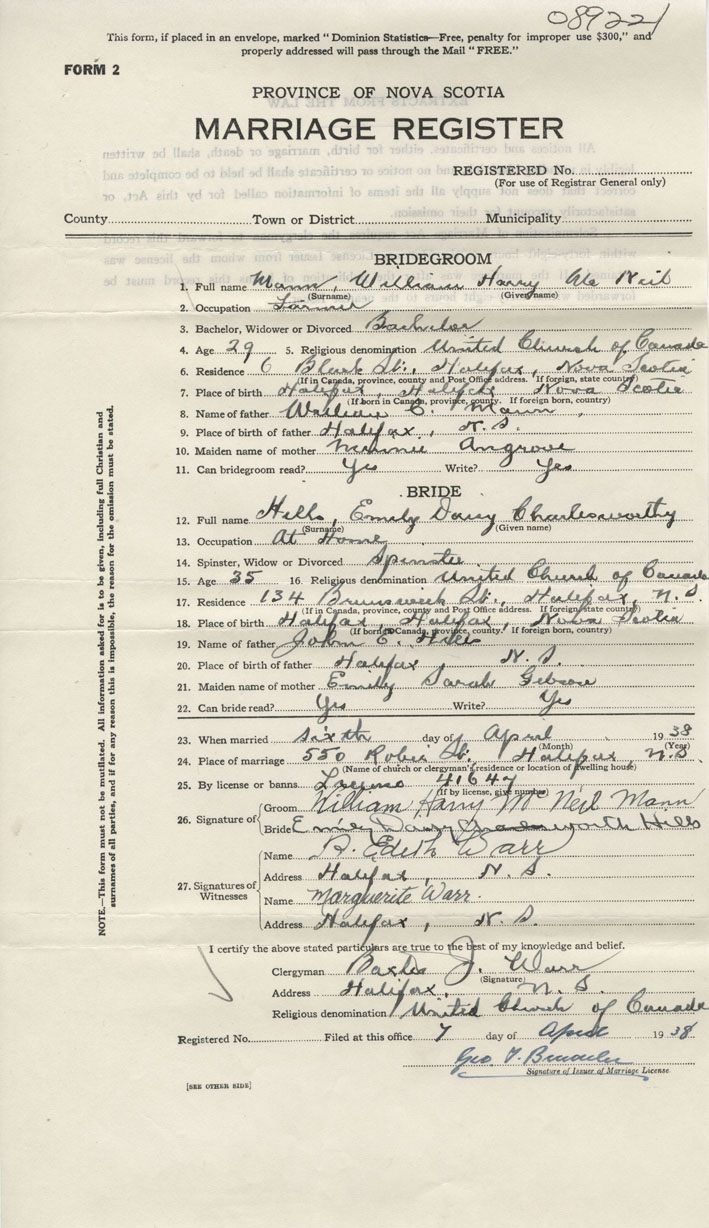 08922
This form, if placed in an envelope, marked "Dominion Statistics—Free, penalty for improper use $300," and
properly addressed will pass through the Mail "FREE."
FORM 2
PROVINCE OF NOVA SCOTIA
MARRIAGE REGISTER
REGISTERED No.
(For use of Registrar General only)
County Town or District Municipality
BRIDEGROOM
1. Full name Mann, William Harry Mc Neil
(Surname) (Given name)
2. Occupation Farmer
3. Bachelor, Widower or Divorced Bachelor
4. Age 29 5. Religious denomination United Church of Canada
6. Residence 6 Black St., Halifax, Nova Scotia
(If in Canada, province, county and Post Office address. If foreign, state country)
7. Place of birth Halifax, Halifax Nova Scotia
(If born in Canada, province, county. If foreign born, country)
8. Name of father William C. Mann,
9. Place of birth of father Halifax, N.S.
10. Maiden name of mother Minnie Angrove
11. Can bridegroom read? Yes Write? Yes
BRIDE
12. Full name Hills, Emily Daisy Charlesworthy
(Surname) (Given name)
13. Occupation At Home
14. Spinster, Widow or Divorced Spinster
15. Age 35 16. Religious denomination United Church of Canada
17. Residence 134 Brunswick St., Halifax, N.S.
(If in Canada, province, county and Post Office address. If foreign, state country)
18. Place of birth Halifax, Halifax, Nova Scotia
(If born in Canada, province, county. If foreign born, country)
19. Name of father John E. Hills
20. Place of birth of father Halifax, N.S.
21. Maiden name of mother Emily Sarah Gibson
22. Can bride read? Yes Write? Yes
23. When married sixth day of April 1938
(Month) (Year)
24. Place of marriage 550 Robie St., Halifax, N.S.
(Name of church or clergyman's residence or location of dwelling house)
25. By license or banns License 41647
(If by license, give number)
26. Signature of Groom William Harry Mc Neil Mann
Bride Emily Daisy Charlesworth Hills
27. Signatures of Witnesses
Name R. Edith Warr
Address Halifax, N.S.
Name Marguerite Warr.
Address Halifax, N.S.
I certify the above stated particulars are true to the best of my knowledge and belief.
Clergyman Baxter J. Warr
(Signature)
Address Halifax, N.S.
Religious denomination United Church of Canada
Registered No. Filed at this office 7 day of April 1938
Geo. F.
Signature of Issuer of Marriage License
[SEE OTHER SIDE]
NOTE.—This form must not be mutilated. All information asked for is to be given, including full Christian and
surnames of all parties, and if for any reason this is impossible, the reason for the omission must be stated.